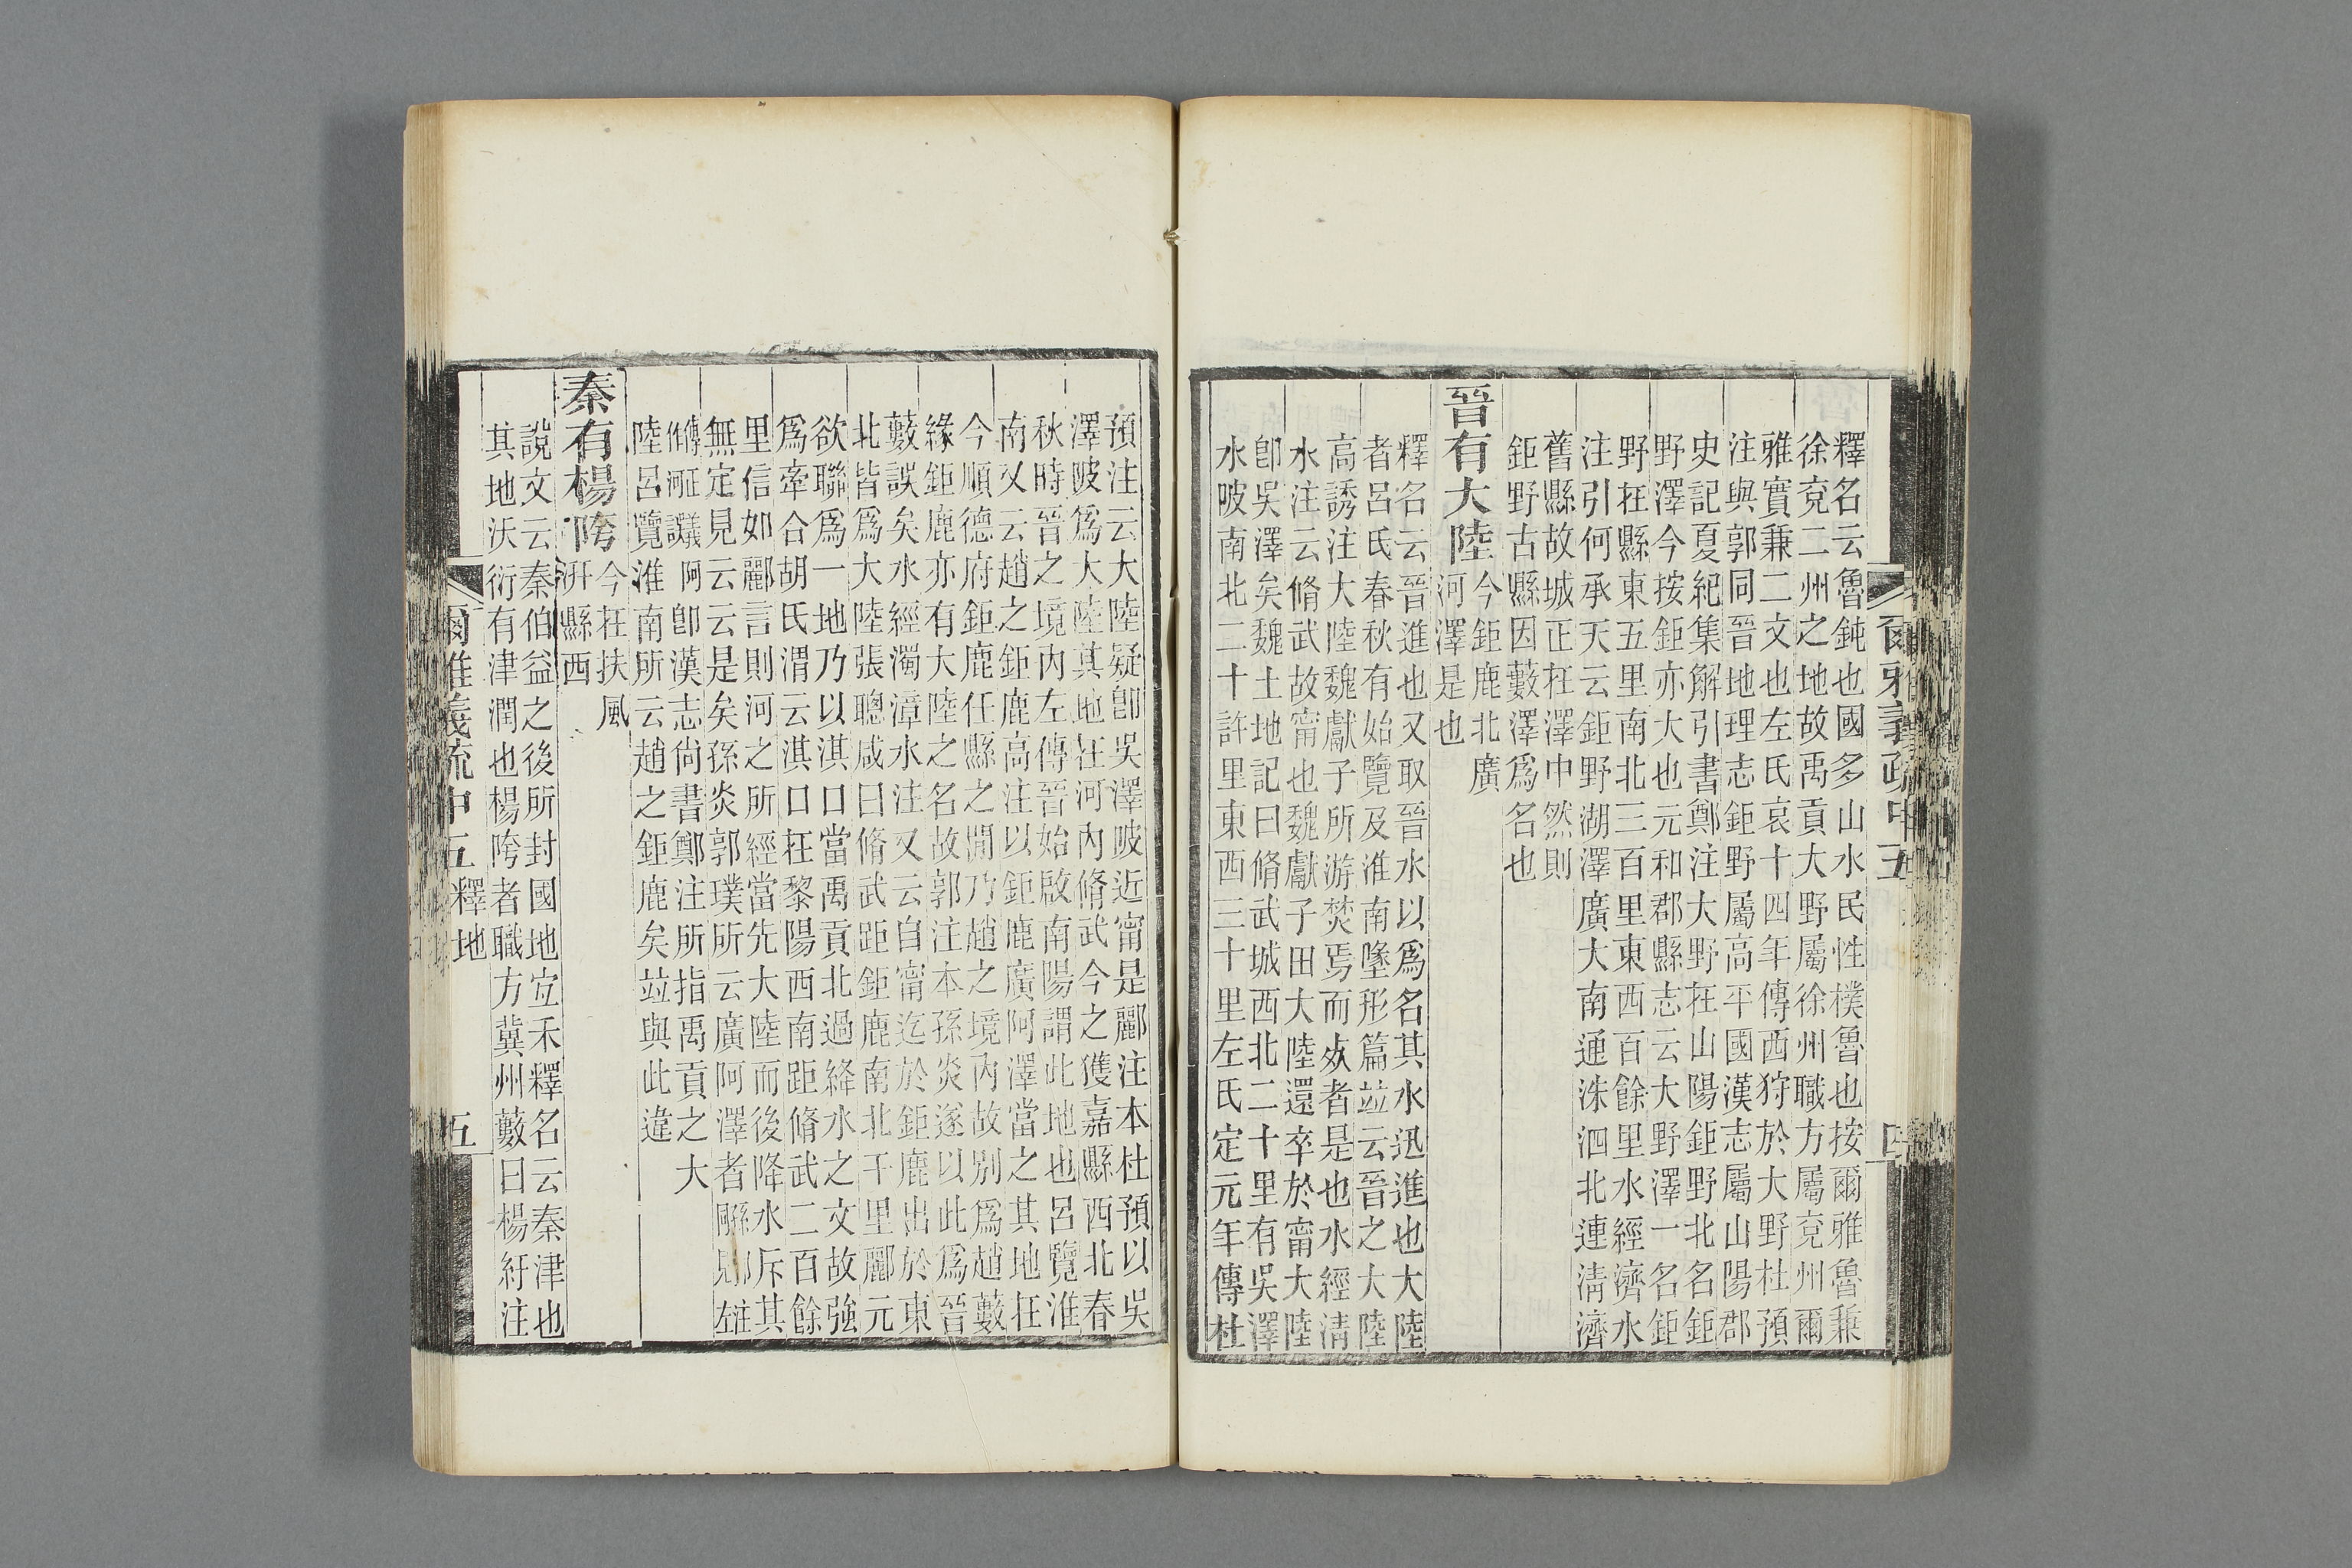 釋名云魯鈍也國多山水民性樸魯也按爾雅魯兼
徐兗二州之地故禹貢大野屬徐州職方屬兗州爾
雅實兼二文也左氏哀十四年傳西狩於大野杜預
注與郭同晉地理志鉅野屬高平國漢志屬山陽郡
史記夏紀集解引書鄭注大野在山陽鉅野北名鉅
野澤今按鉅亦大也元和郡縣志云大野澤一名鉅
野在縣東五里南北三百里東西百餘里水經濟水
注引何承天云鉅野湖澤廣大南通洙泗北連淸濟
舊縣故城正在澤中然則
鉅野古縣因藪澤爲名也
晉有大陸
今鉅鹿北廣
河澤是也
釋名云晉進也又取晉水以爲名其水迅進也大陸
者呂氏春秋有始覽及淮南墬形篇竝云晉之大陸
高誘注大陸魏獻子所游焚焉而㱙者是也水經淸
水注云脩武故甯也魏獻子田大陸還卒於甯大陸
卽吳澤矣魏土地記曰脩武城西北二十里有吳澤
水陂南北二十許里東西三十里左氏定元年傳杜
預注云大陸疑卽吳澤陂近甯是酈注本杜預以吳
澤陂爲大陸其地在河內脩武今之獲嘉縣西北春
秋時晉之境內左傳晉始啟南陽謂此地也呂覽淮
南又云趙之鉅鹿高注以鉅鹿廣阿澤當之其地在
今順德府鉅鹿任縣之閒乃趙之境內故別爲趙藪
緣鉅鹿亦有大陸之名故郭注本孫炎遂以此爲晉
藪誤矣水經濁漳水注又云自甯迄於鉅鹿出於東
北皆爲大陸張聰咸曰脩武距鉅鹿南北千里酈元
欲聯爲一地乃以淇口當禹貢北過絳水之文故強
爲牽合胡氏渭云淇口在黎陽西南距脩武二百餘
里信如酈言則河之所經當先大陸而後降水斥其
無定見云云是矣孫炎郭璞所云廣阿澤者郰見左注
傳河正作阿議卽漢志尙書鄭注所指禹貢之大
陸呂覽淮南所云趙之鉅鹿矣竝與此違
秦有楊陓
今在扶風
汧縣西
說文云秦伯益之後所封國地宜禾釋名云秦津也
其地沃衍有津潤也楊陓者職方冀州藪曰楊紆注
爾雅義疏中五 釋地
五